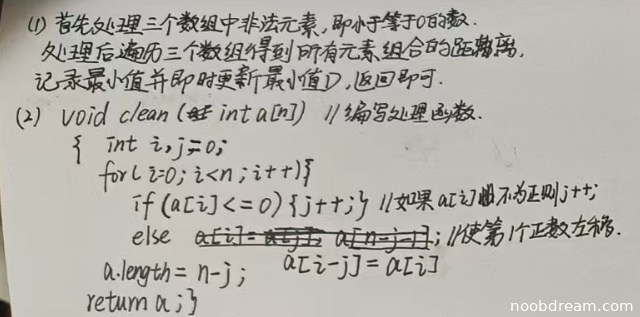 (1) 首先处理三个数组中非法元素,即小于等于0的数.
处理后遍历三个数组得到所有元素组合的距离,
记录最小值并即时更新最小值D,返回即可.
(2) void clean (int a[n]) //编写处理函数.
{ int i,j=0;
for(i=0;i<n;i++){
if(a[i]<=0){j++;} //如果a[i]不为正则j++;
else a[i]=a[j]; a[n-j-1]; //使第1个正数左移.
a.length=n-j; a[i-j]=a[i]
return a;}
noobdream.com